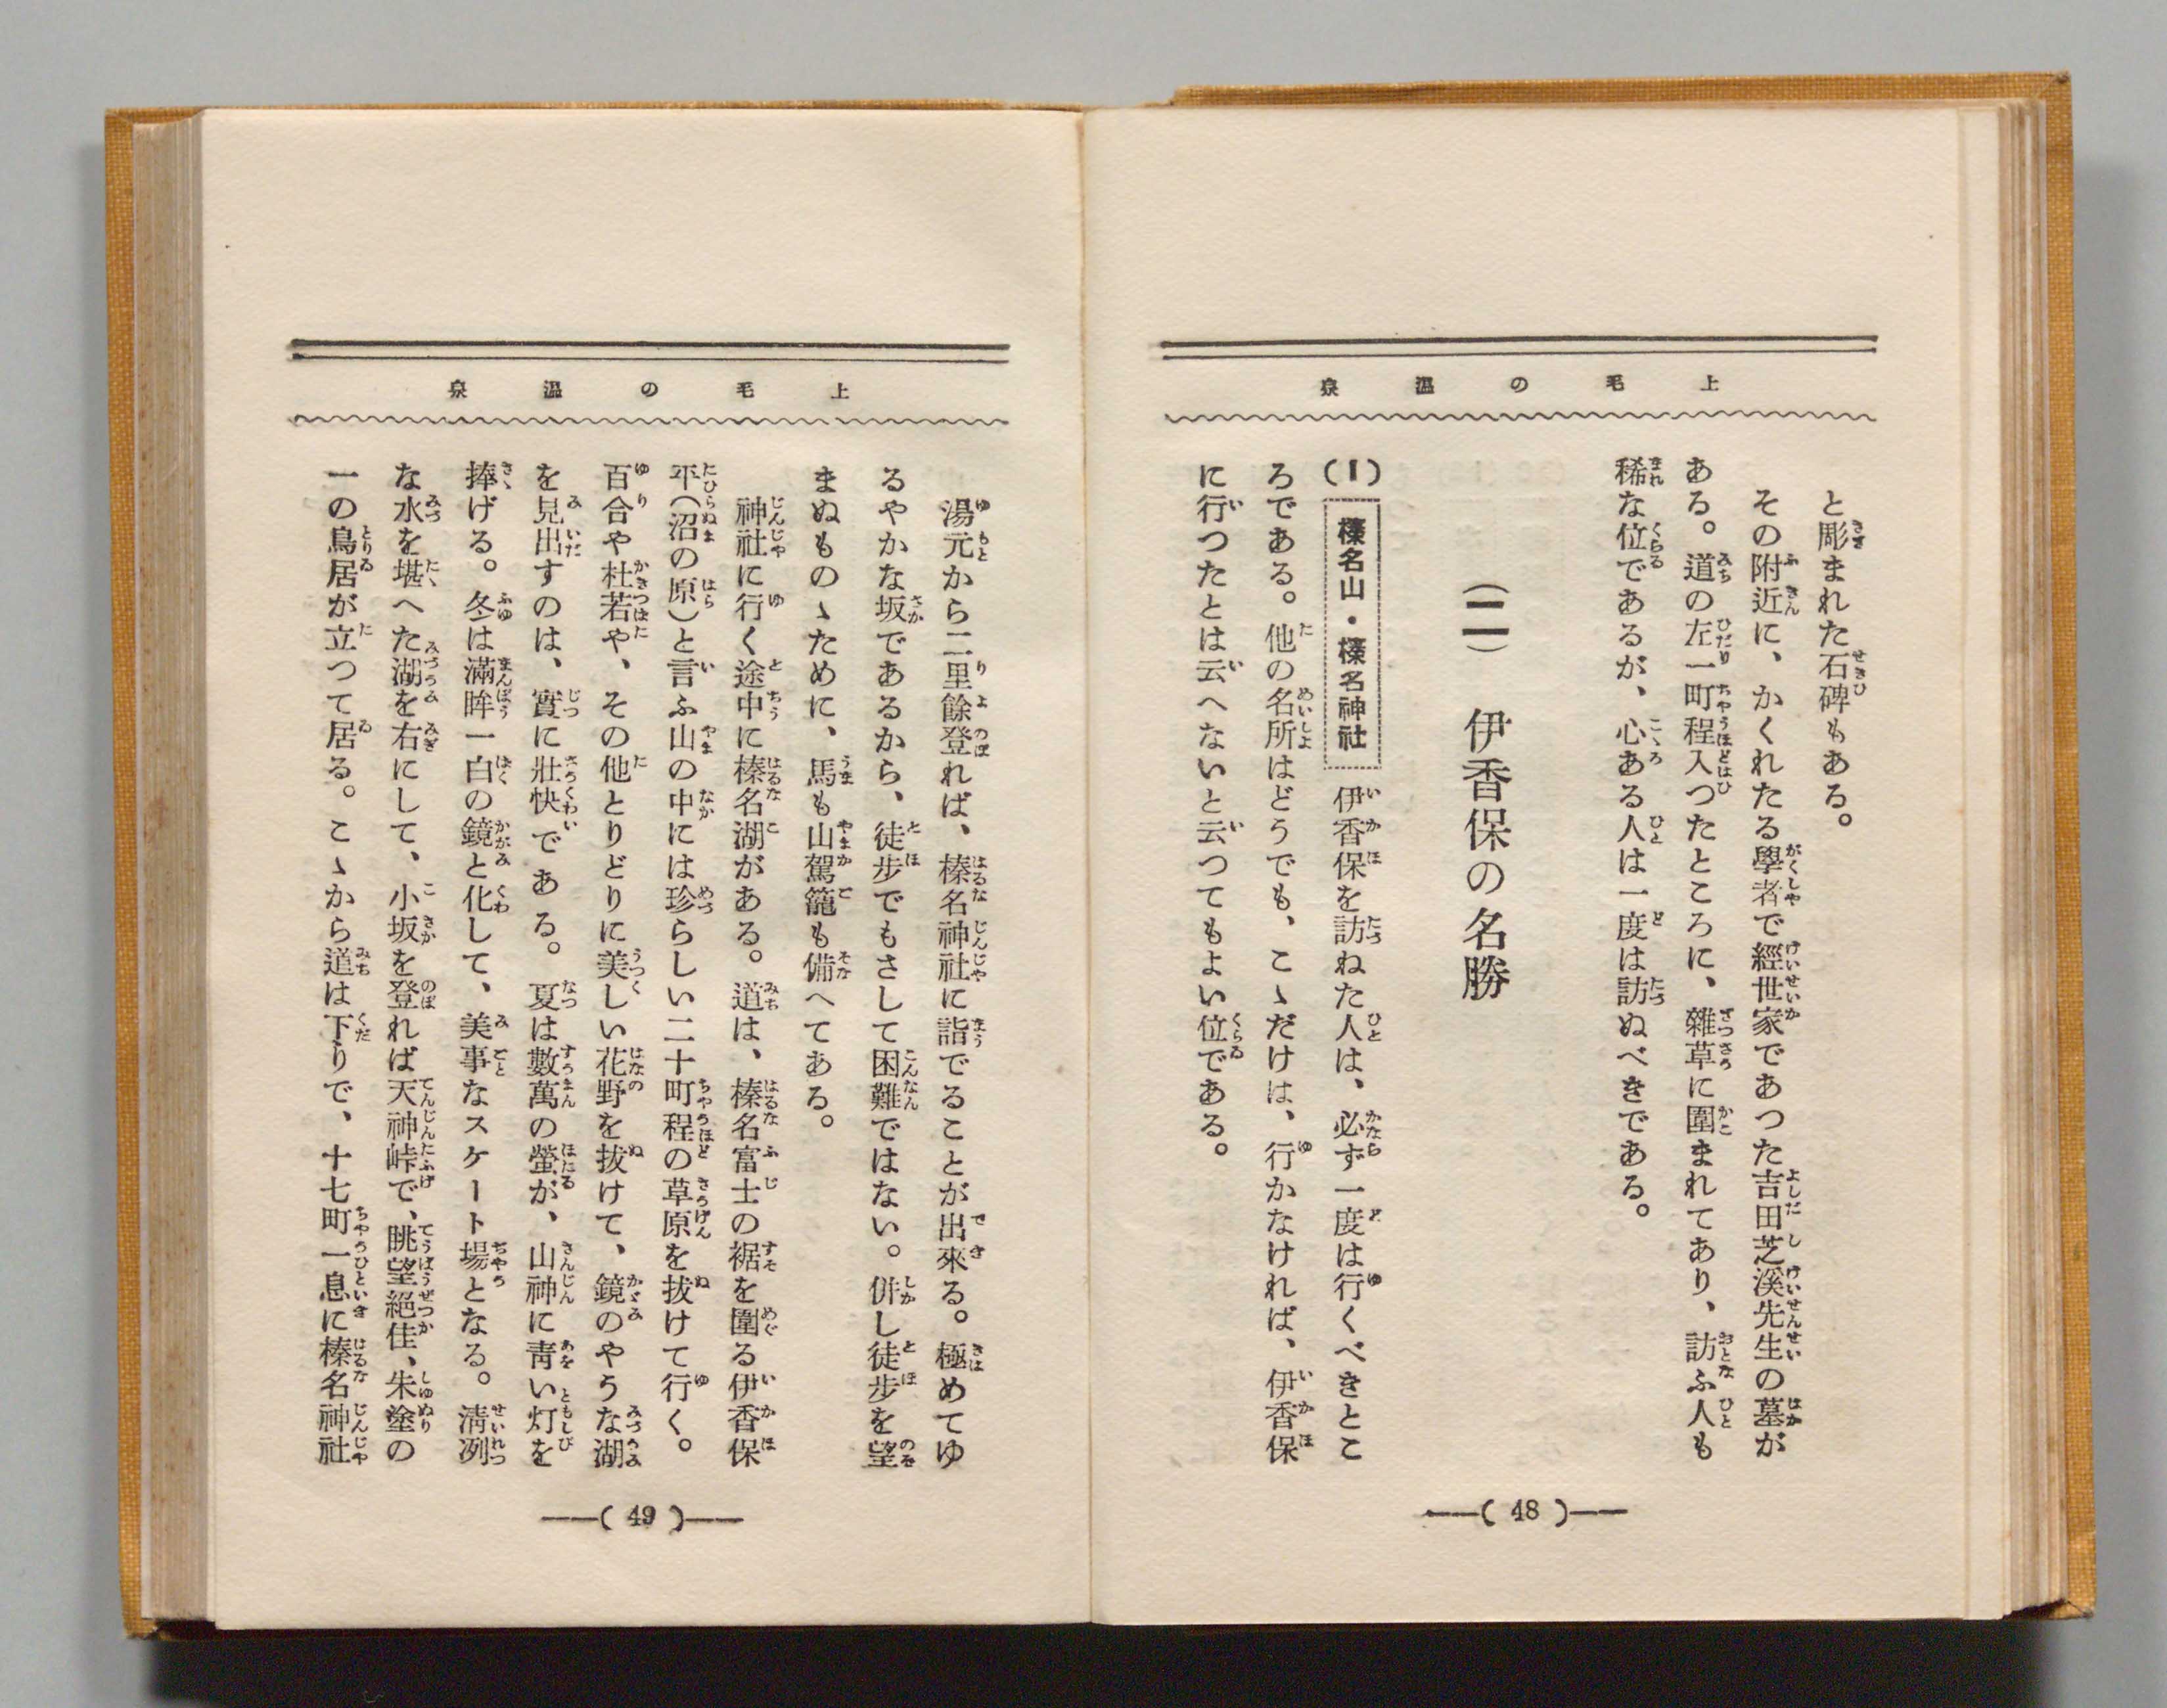 上毛の温泉
と彫まれた石碑もある。
その附近に、かくれたる學者で經世家であつた吉田芝溪先生の墓が
ある。道の左一町程入つたところに、雜草に圍まれてあり、訪ふ人も
稀な位であるが、心ある人は一度は訪ぬべきである。
(二) 伊香保の名勝
(1) 榛名山・榛名神社 伊香保を訪ねた人は、必ず一度は行くべきとこ
ろである。他の名所はどうでも、こゝだけは、行かなければ、伊香保
に行つたとは云へないと云つてもよい位である。
—( 48 )—
上毛の温泉
湯元から二里餘登れば、榛名神社に詣でることが出來る。極めてゆ
るやかな坂であるから、徒步でもさして困難ではない。併し徒步を望
まぬものゝために、馬も山駕籠も備へてある。
神社に行く途中に榛名湖がある。道は、榛名富士の裾を圍る伊香保
平(沼の原)と言ふ山の中には珍らしい二十町程の草原を拔けて行く。
百合や杜若や、その他とりどりに美しい花野を拔けて、鏡のやうな湖
を見出すのは、實に壯快である。夏は數萬の螢が、山神に靑い灯を
捧げる。冬は滿眸一白の鏡と化して、美事なスケート場となる。淸冽
な水を堪へた湖を右にして、小坂を登れば天神峠で、眺望絕佳、朱塗の
一の鳥居が立つて居る。こゝから道は下りで、十七町一息に榛名神社
—( 49 )—